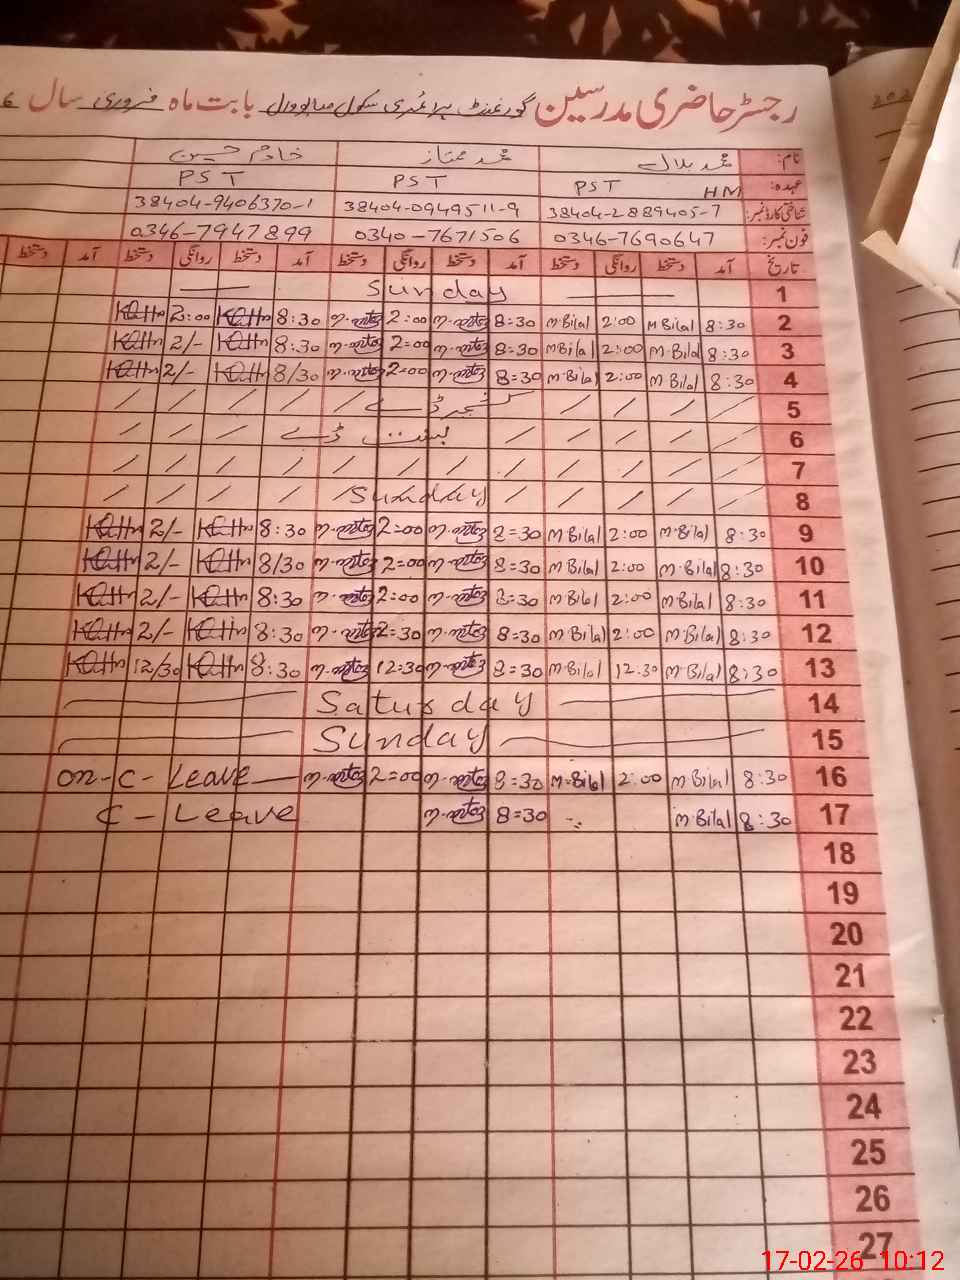 رجسٹر حاضری مدرسین گورنمنٹ پرائمری سکول میانوالی بابت ماہ فروری سال 6
نام: محمد بلال محمد ممتاز خادم حسین
عہدہ: HM PST PST PST
شناختی کارڈ نمبر: 38404-2889405-7 38404-0949511-9 38404-9406370-1
فون نمبر: 0346-7690647 0340-7671506 0346-7947899
تاریخ آمد دستخط روانگی دستخط آمد دستخط روانگی دستخط آمد دستخط روانگی دستخط آمد دستخط
1 Sunday
2 8:30 M Bilal 2:00 M Bilal 8=30 2:00 8:30 2:00
3 8:30 M.Bilal 2:00 M Bilal 8=30 2=00 8:30 2/-
4 8:30 M.Bilal 2:00 M.Bilal 8=30 2=00 8/30 2/-
5 / / / / ڈے / / / / /
6 / / / / / ڈے / / /
7 / / / / / / / / / / / /
8 / / / / / Sunday / / / / /
9 8:30 M.Bilal 2:00 M Bilal 8=30 2=00 8:30 2/-
10 8:30 M.Bilal 2:00 M Bilal 8=30 2=00 8/30 2/-
11 8:30 M.Bilal 2:00 M Bilal 8=30 2=00 8:30 2/-
12 8:30 M.Bilal 2:00 M.Bilal 8=30 2=30 8:30 2/-
13 8:30 M.Bilal 12:30 M.Bilal 8=30 12=30 8:30 12/30
14 Saturday
15 Sunday
16 8:30 M.Bilal 2:00 M.Bilal 8=30 2=00 on-C-Leave
17 8:30 M.Bilal 8=30 C-Leave
18
19
20
21
22
23
24
25
26
27
17-02-26 10:12